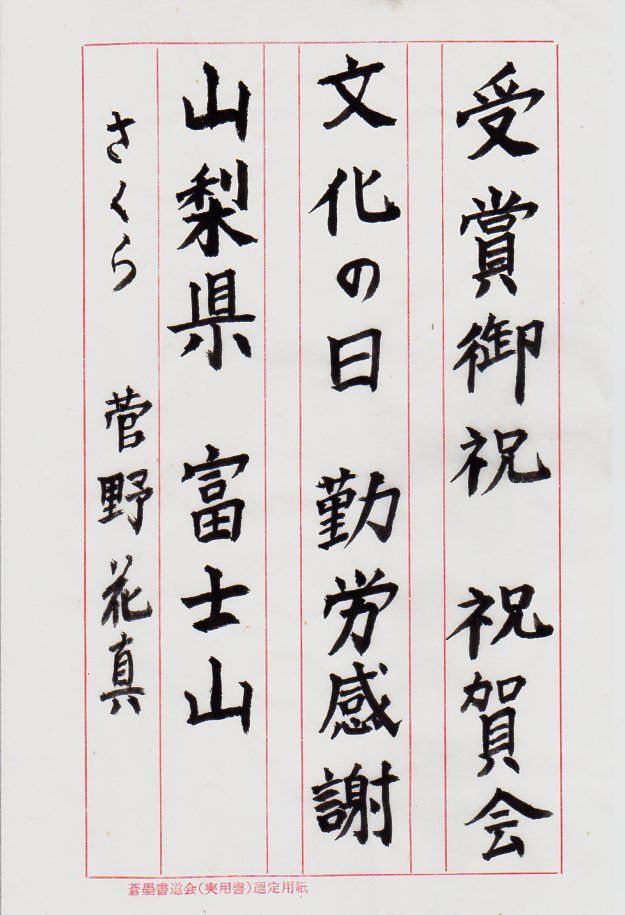 受賞御祝　祝賀会
文化の日　勤労感謝
山梨県　富士山
さくら　菅野花真
蒼墨書道会(実用書)選定用紙